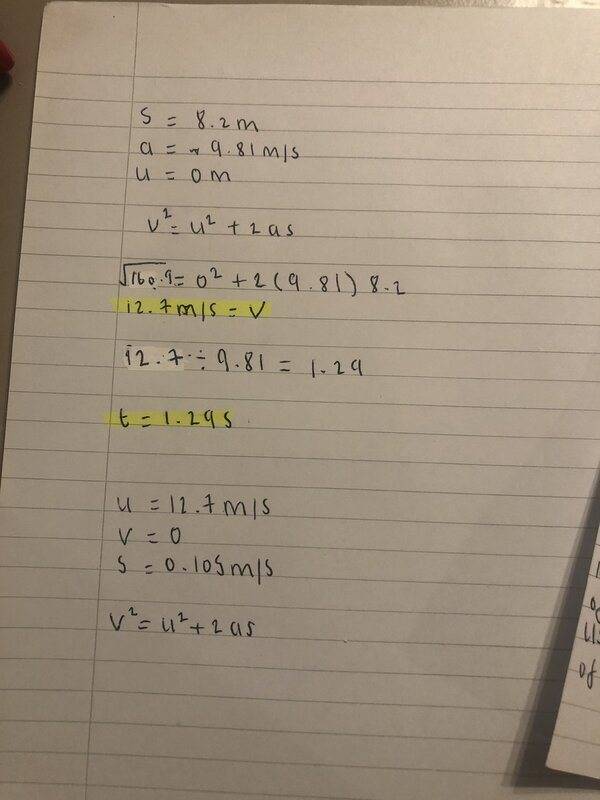 s = 8.2m
a = - 9.81 m/s
u = 0 m
v² = u² + 2as
√160.9 = 0² + 2(9.81) 8.2
12.7 m/s = v
12.7 ÷ 9.81 = 1.29
t = 1.29s
u = 12.7 m/s
v = 0
s = 0.105 m/s
v² = u² + 2as
of